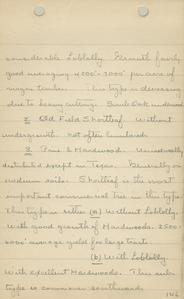 considerable Loblolly. Growth fairly
good averaging 2000'-3000' per acre of
virgin timber. This type is decreasing
due to heavy cutting. Scrub Oak underwood
2. Old Field Shortleaf. Without
undergrowth. Not often lumbered.
3. Pine & Hardwood. Universally
distributed except in Texas. Generally on
medium soils. Shortleaf is the most
important commercial tree in this type.
This type is either (a) Without Loblolly,
With good growth of Hardwoods. 2500-
average yield for large tracts.
(b) With Loblolly
With excellent Hardwoods. This sub-
type is common southwards